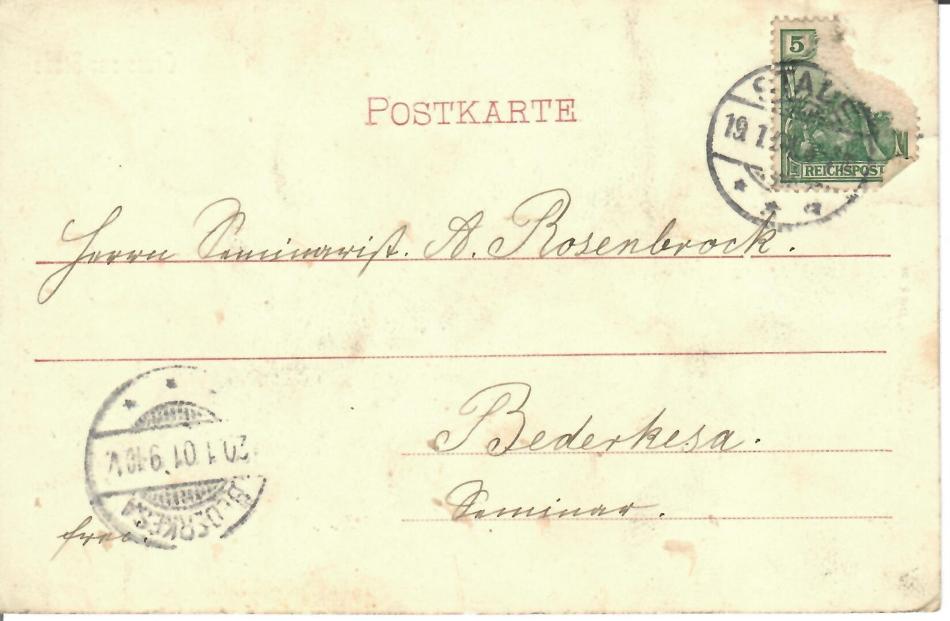 POSTKARTE
5
REICHSPOST
19. 1.
Herrn Seminarist. A. Rosenbrock.
Bederkesa.
Seminar.
20 1 01 9-10 V.
BEDERKESA
frei.